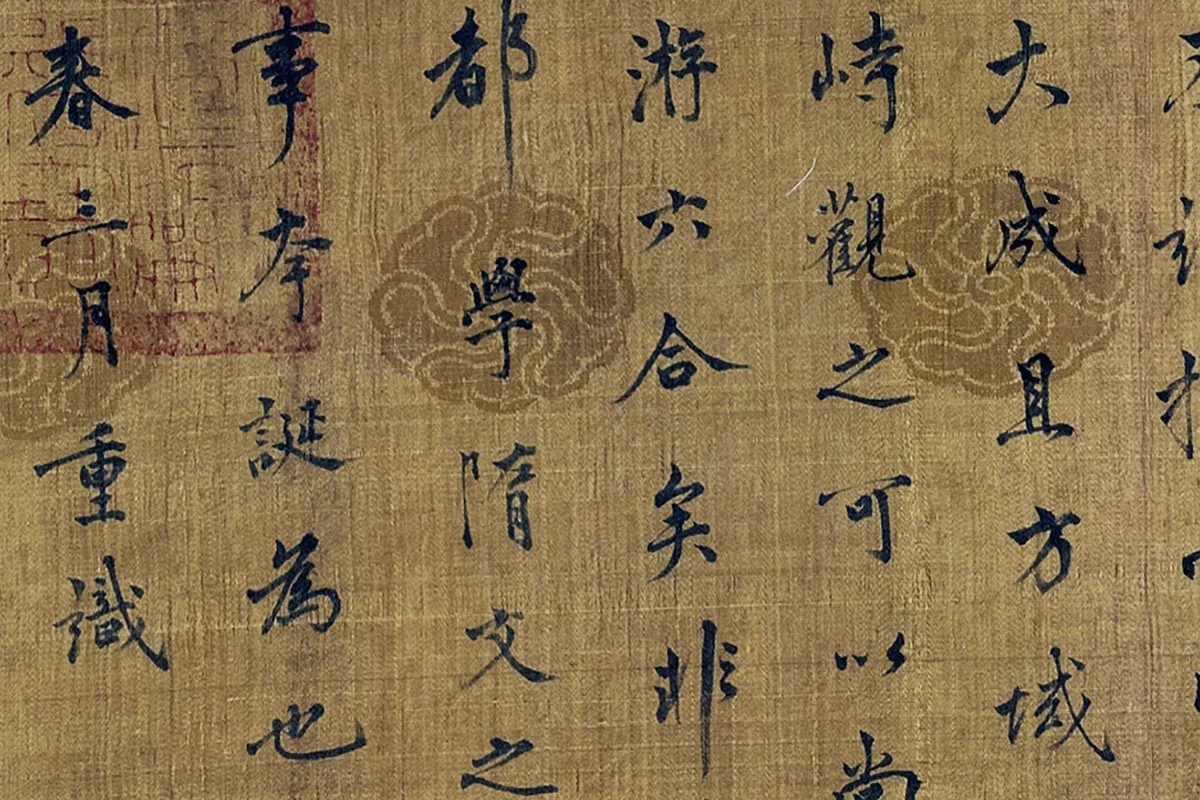 大成且方域
峙觀之可以尚
游六合矣非
都學隋文之
事夲誕為也
春三月重識